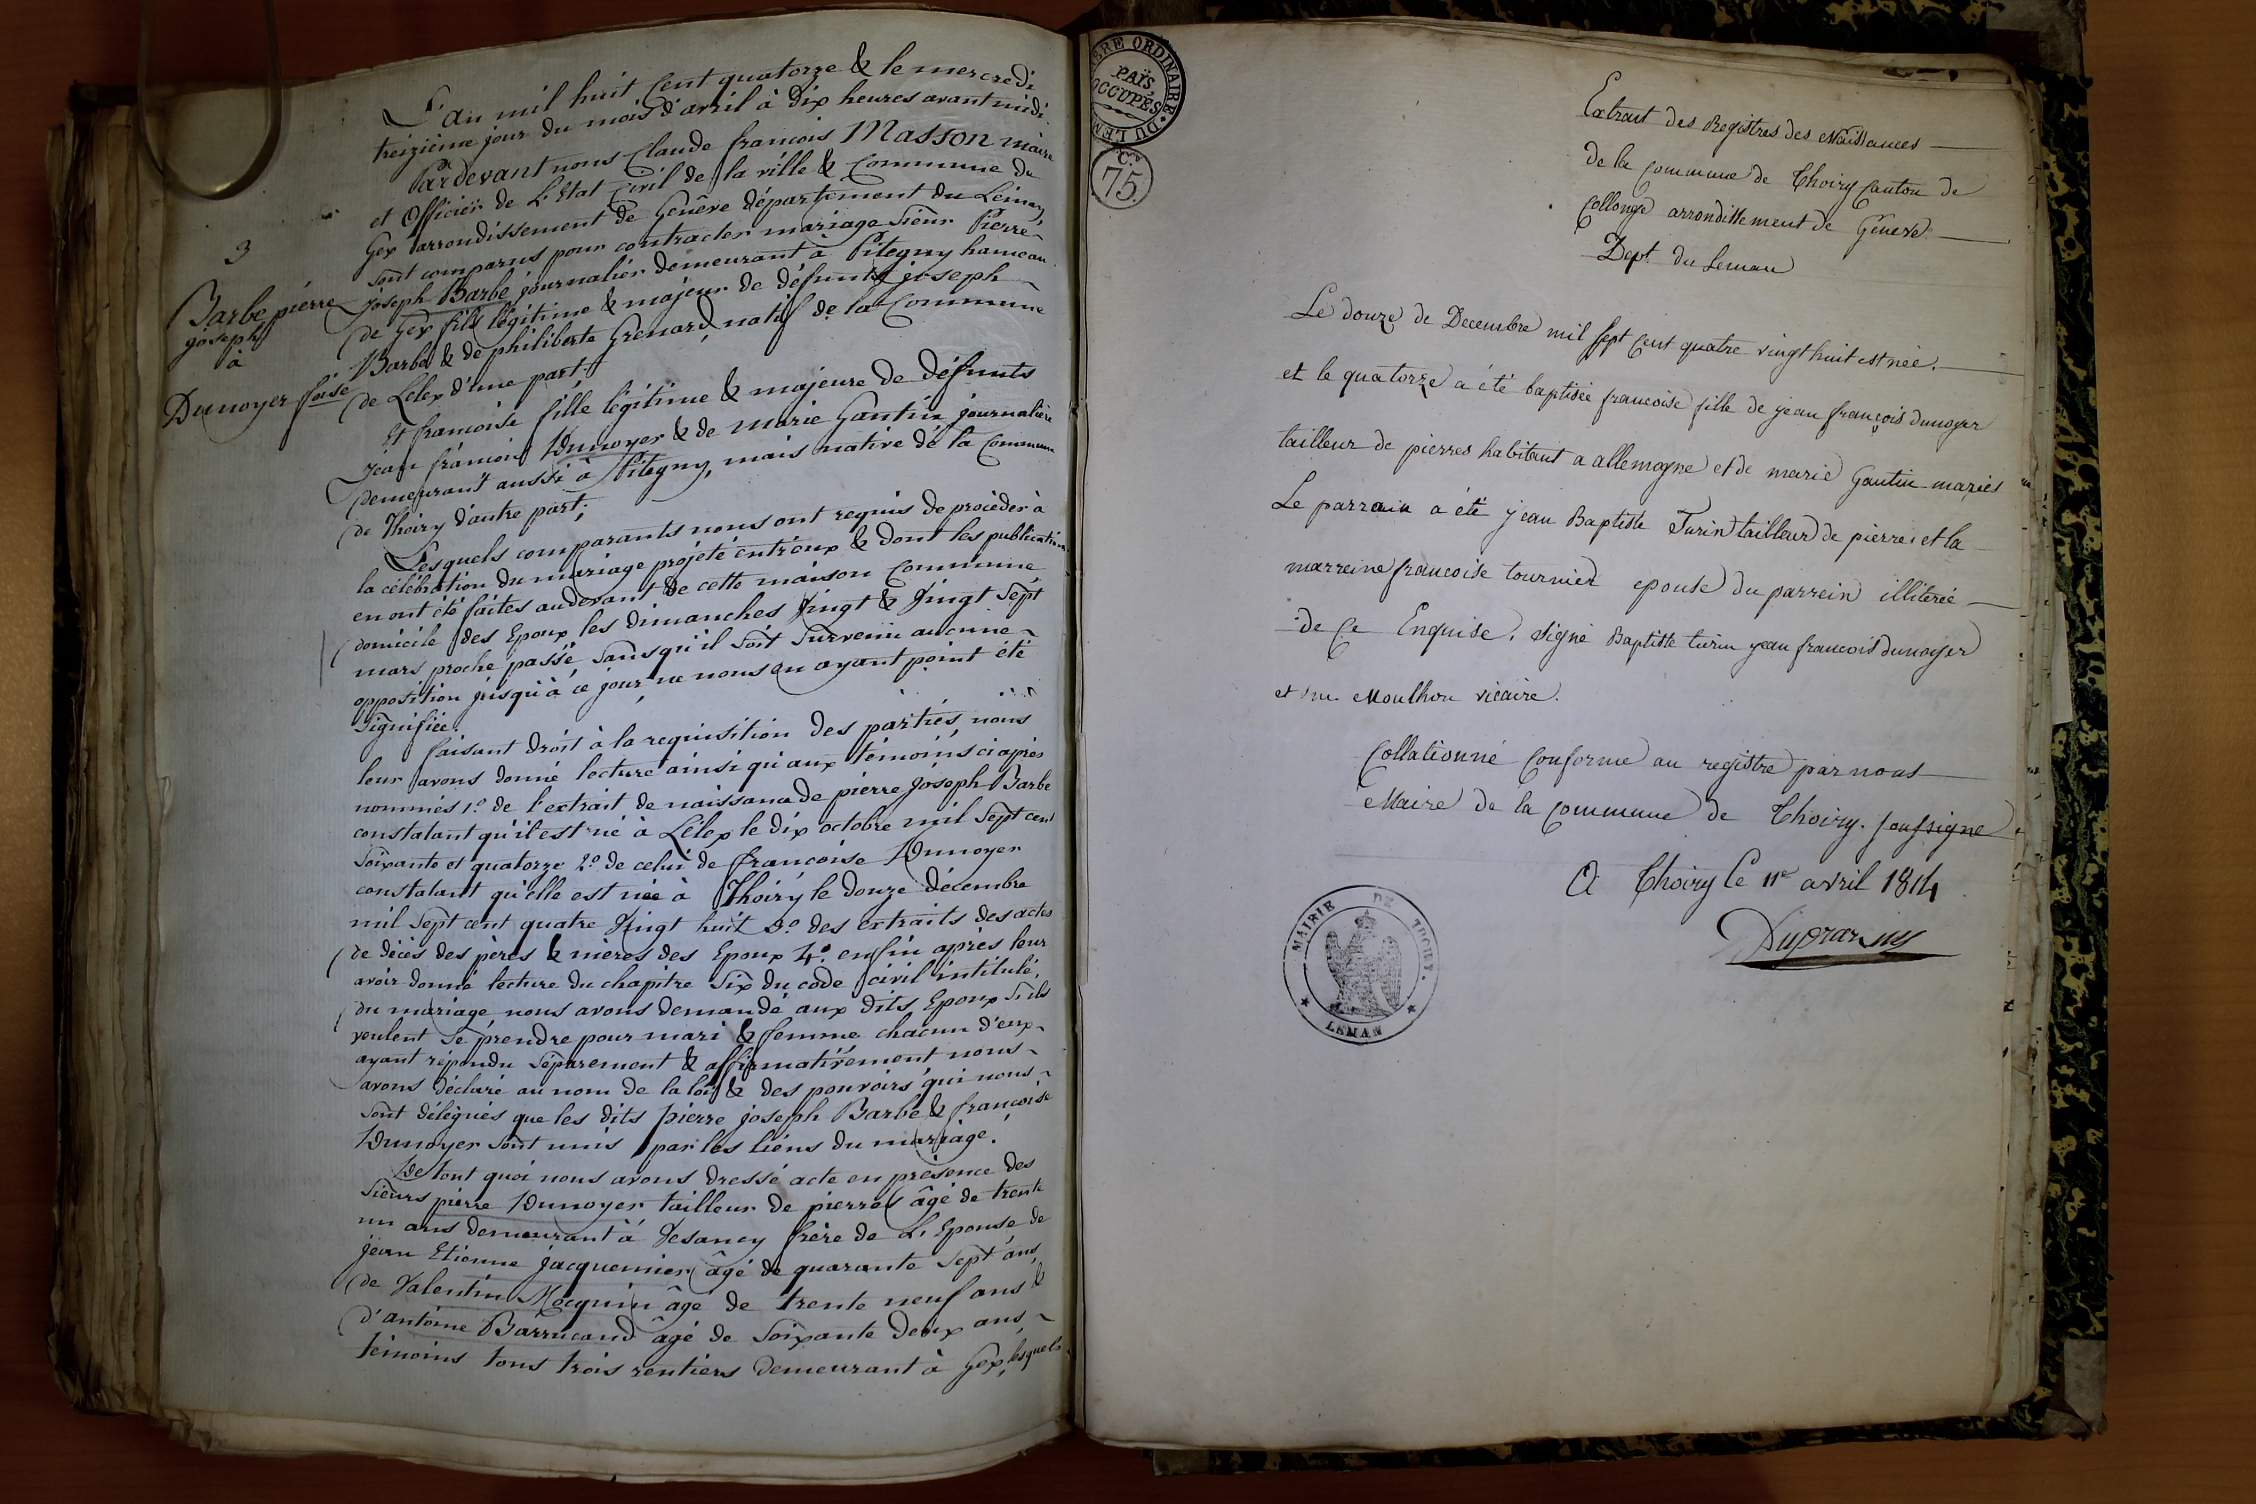 L'an mil huit Cent quatorze & le mercredi
treizième jour du mois d'avril à dix heures avant midi.
Pardevant nous Claude françois Masson maire
et officier de L'Etat Civil de la ville & Commune de
Gex arrondissement de Genêve département du Léman,
sont comparus pour contracter mariage Sieur Pierre
3
Barbe pierre
joseph
à
Dunoyer foise
joseph Barbe journalier demeurant à Pitegny hameau
de Gex fils légitime & majeur de défunts joseph
Barbe & de philiberte Grenard, natif de la Commune
de Lélex d'une part;
Et francoise fille légitime & majeure de défunts
Jean françois Dunoyer & de marie Gantin journalière
demeurant aussi à Pitegny, mais native de la Commune
de Thoiry d'autre part;
Lesquels comparants nous ont requis de procéder à
la célébration du mariage projeté entr'eux & dont les publications
en ont été faites audevant de cette maison Commune
domicile des Epoux les dimanches Vingt & Vingt Sept
mars proche passé, sans qu'il soit survenu aucune
opposition jusqu'à ce jour, ne nous en ayant point été
signifiée.
faisant droit à la requisition des parties, nous
leur avons donné lecture ainsi qu'aux témoins ci après
nommés 1.º de l'extrait de naissance de pierre joseph Barbe
constatant qu'il est né à Lélex le dix octobre mil sept cent
soixante et quatorze 2.º de celui de francoise Dunoyer
constatant qu'elle est née à Thoiry le douze décembre
mil sept cent quatre Vingt huit 3.º des extraits des actes
de décès des pères & mères des Epoux 4.º enfin après leur
avoir donné lecture du chapitre six du code civil intitulé,
du mariage, nous avons demandé aux dits Epoux s'ils
veulent se prendre pour mari & femme chacun d'eux
ayant répondu séparement & affirmativement nous
avons déclaré au nom de la loi & des pouvoirs qui nous
sont délégués que les dits pierre joseph Barbe & françoise
Dunoyer sont unis par les liens du mariage.
De tout quoi nous avons dressé acte en présence des
Sieurs pierre Dunoyer tailleur de pierres âgé de trente
un ans demeurant à Vesancy frère de L'Epouse, de
jean Etienne jacquemier âgé de quarante sept ans,
de Valentin Mocquin âge de trente neuf ans &
d'antoine Barrucand âgé de soixante deux ans,
témoins tous trois rentiers demeurant à Gex, lesquels
ORDINAIRE DU LEM
PAÏS
OCCUPÉS
C.
75.
Extrait des Registres des Naissances
de la commune de Thoiry Canton de
Collonge arrondissement de Geneve
Dept. du Leman
Le douze de Decembre mil sept cent quatre vingt huit est née.
et le quatorze a été baptisée francoise fille de jean françois dunoyer
tailleur de pierres habitant a allemogne et de marie Gantin mariés
Le parrain a été jean Baptiste Turin tailleur de pierre et la
marreine francoise tournier epouse du parrein illiterée
de ce Enquise. signé Baptiste turin jean francois dunoyer
et Moulhon vicaire.
Collationné Conforme au registre par nous
Maire de la commune de Thoiry. soussigne
A Thoiry le 11e avril 1814
MAIRIE DE THOIRY.
LEMAN